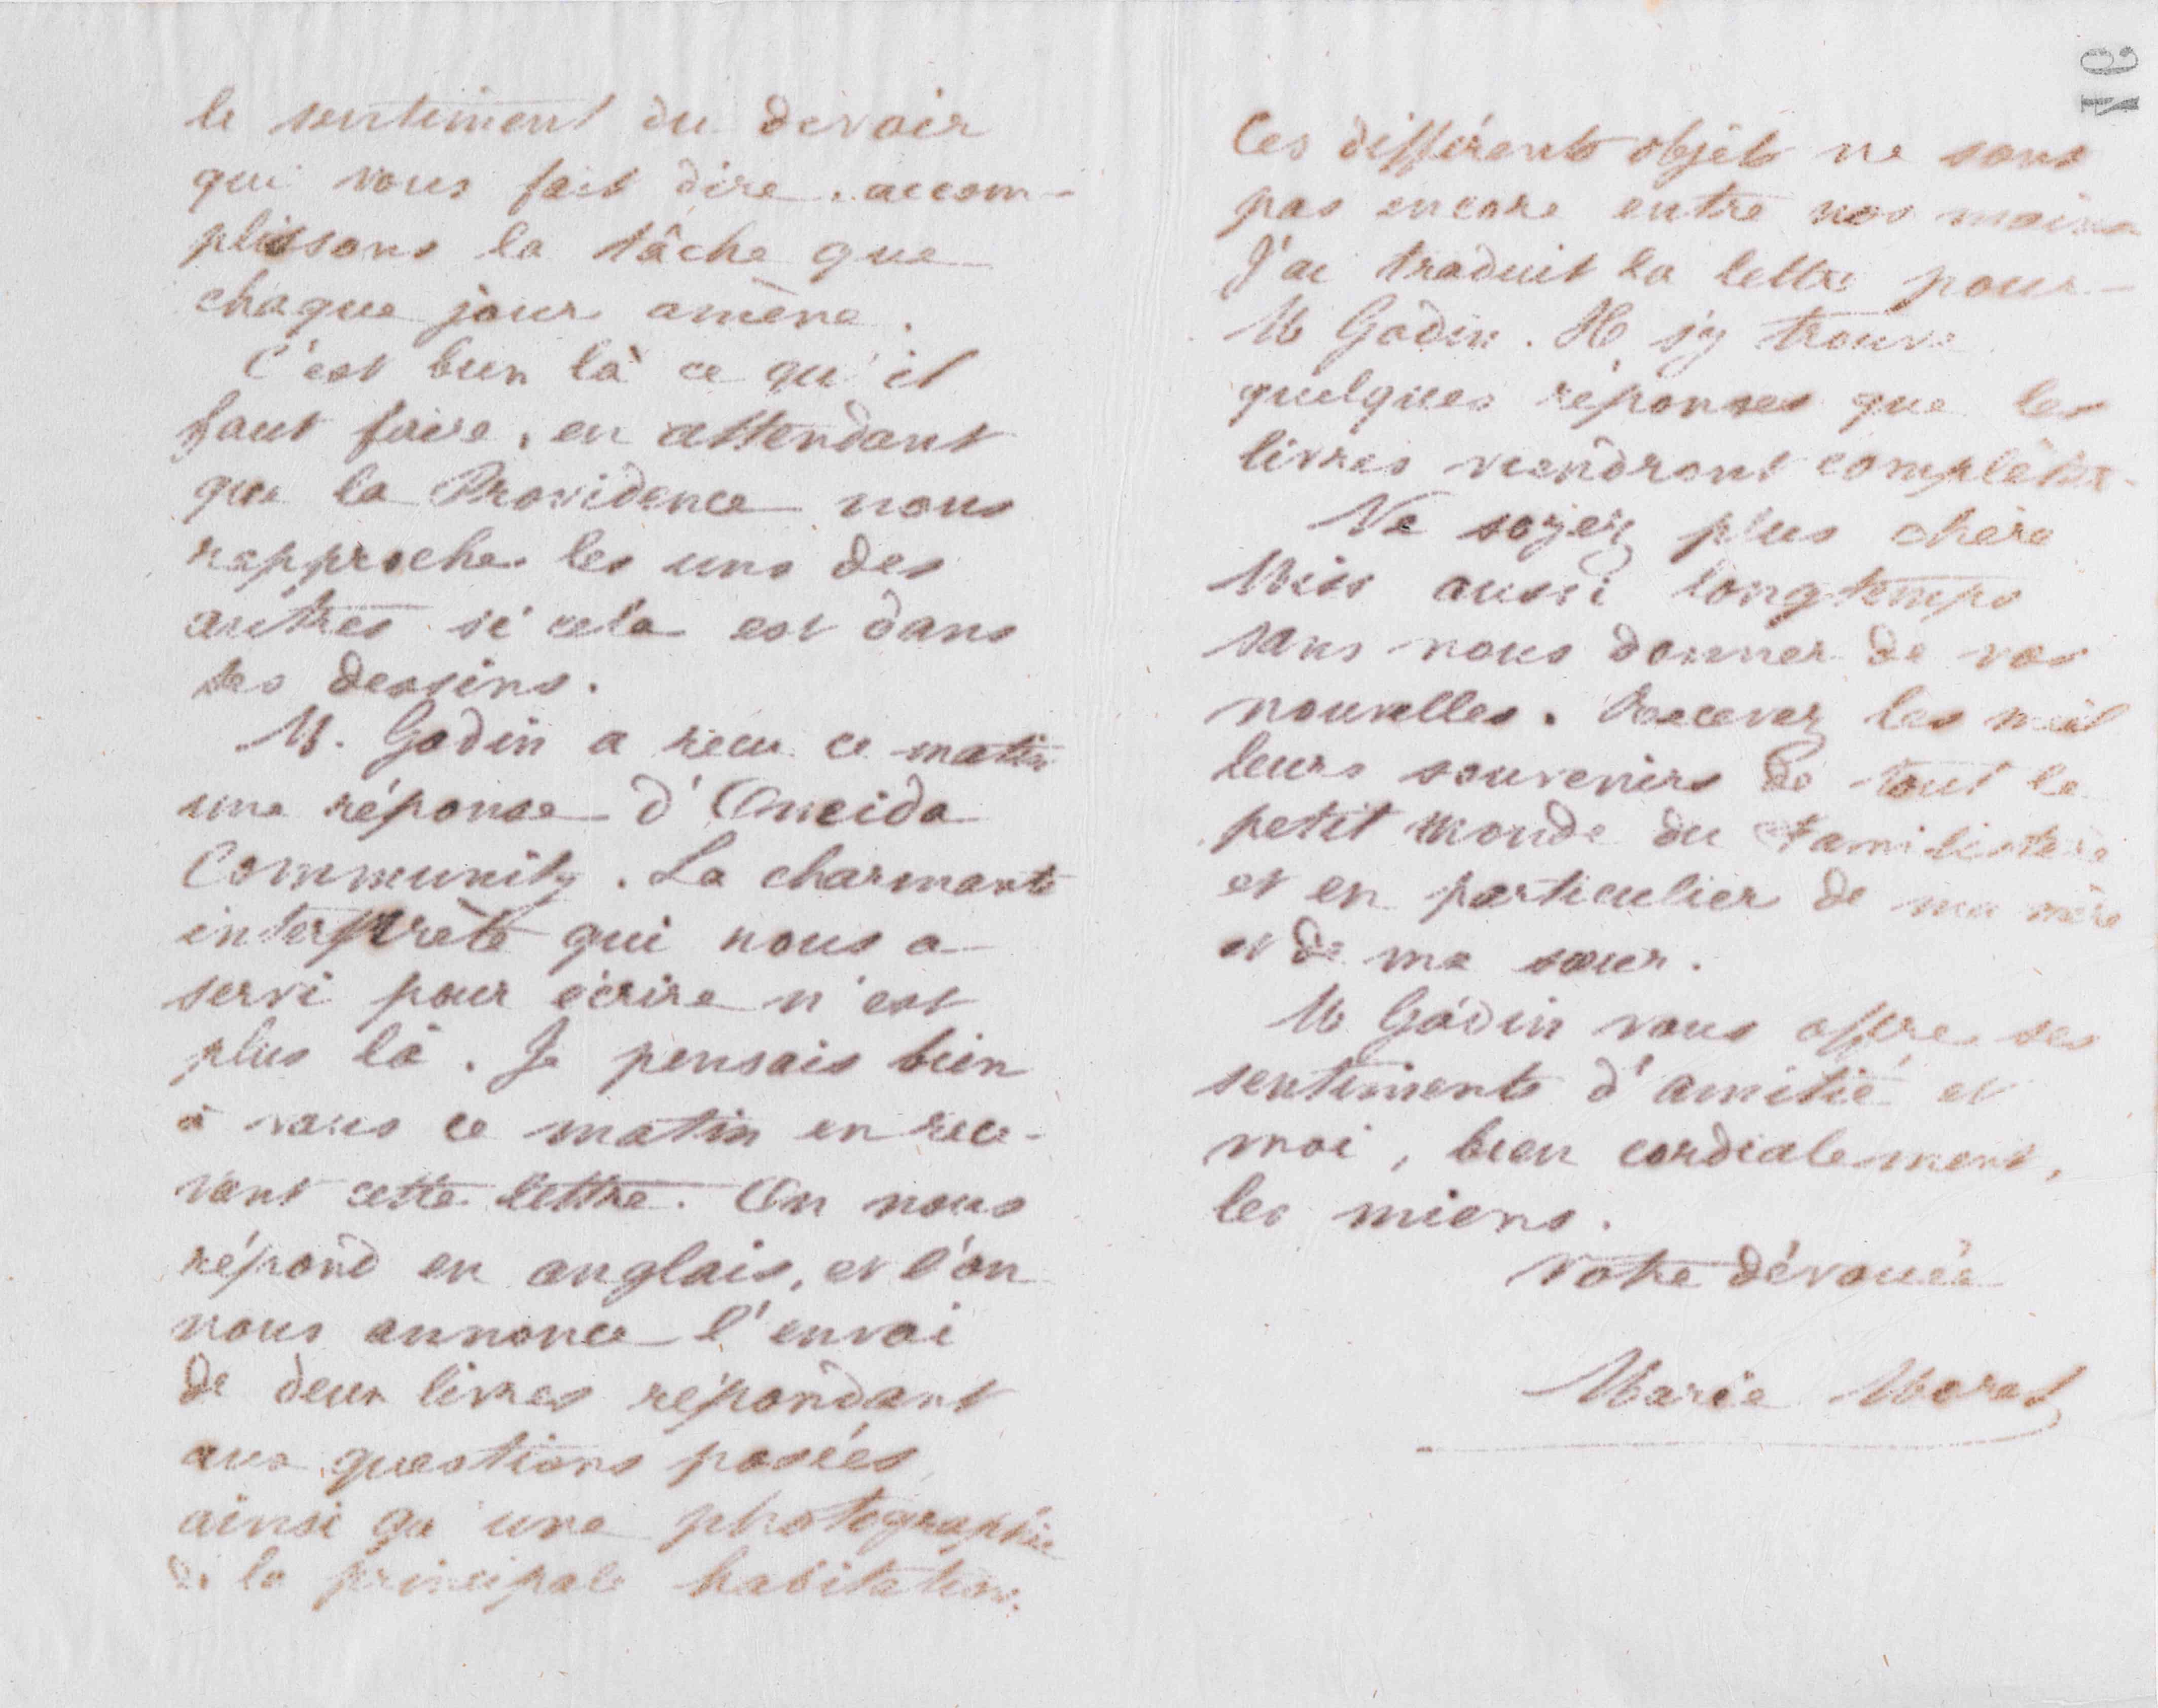 le sentiment du devoir
qui vous fait dire : accom-
plissons la tâche que
chaque jour amène.
C'est bien là ce qu'il
faut faire, en attendant
que la Providence nous
rapproche les uns des
autres si cela est dans
ses dessins.
M. Godin a recu ce matin
une réponse d'Oneida
Community. La charmante
interprète qui nous a
servi pour écrire n'est
plus là. Je pensais bien
à vous ce matin en rece-
vant cette lettre. On nous
répond en anglais, et l'on
nous annonce l'envoi
de deux livres répondant
aux questions posées,
ainsi qu'une photographie
de la principale habitation.
Ces différents objets ne sont
pas encore entre nos mains
J'ai traduit la lettre pour
M Godin. Il s'y trouve
quelques réponses que les
livres viendront compléter.
Ne soyez plus chère
Miss aussi longtemps
sans nous donner de vos
nouvelles. Recevez les meil
leurs souvenirs de tout le
petit monde du Familistère
et en particulier de ma mère
et de ma sœur.
M Godin vous offre ses
sentiments d'amitié et
moi, bien cordialement,
les miens.
Votre dévouée
Marie Moret